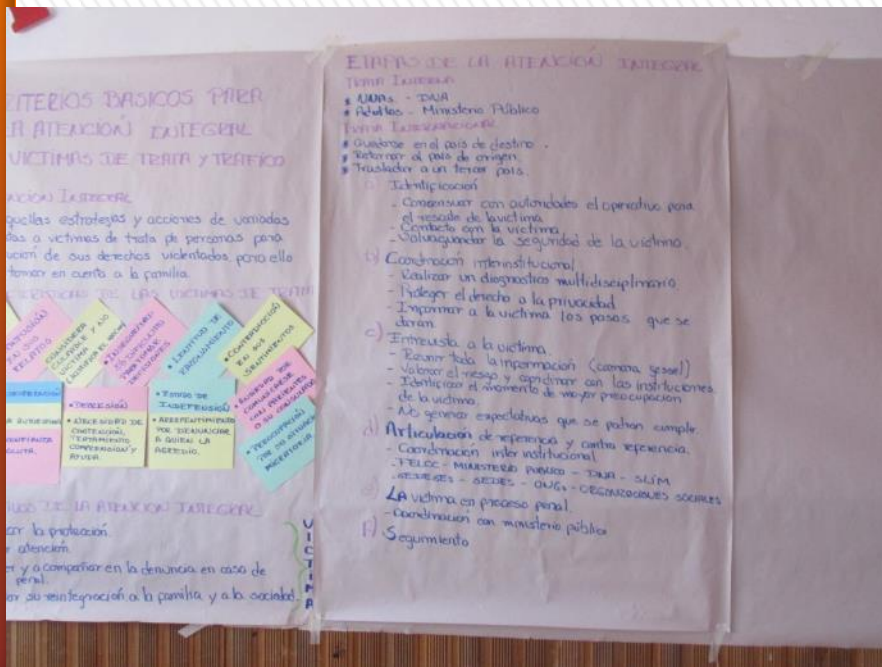 CRITERIOS BASICOS PARA
LA ATENCION INTEGRAL
VICTIMAS DE TRATA Y TRAFICO
ATENCION INTEGRAL
aquellas estrategias y acciones de variadas
a victimas de trata de personas para
de sus derechos violentados para ello
tomar en cuenta a la familia.
DE LAS VICTIMAS DE TRATA
EN SUS
RELATOS
CONSIDERA
CULPABLE Y NO
VICTIMA
• INSEGURIDAD
DIFICULTAD
PARA TOMAR
DECISIONES
• LENTITUD DE
PENSAMIENTO
• CONTRADICCIÓN
EN SUS
SENTIMIENTOS
• DEPRESIÓN
• NECESIDAD DE
CONTENCION,
TRATAMIENTO
COMPRENSION Y
AYUDA.
• ESTADO DE
INDEFENSIÓN
• ARREPENTIMIENTO
POR DENUNCIAR
A QUIEN LA
AGREDIO.
• ANSIEDAD POR
COMUNICARSE
CON PARIENTES
O SU CONSULADO
• PREOCUPACIÓN
POR SU SITUACIÓN
MIGRATORIA.
DE LA ATENCION INTEGRAL
la protección.
atención.
y acompañar en la denuncia en caso de
penal.
su reintegración a la familia y a la sociedad.
VICTIMA
ETAPAS DE LA ATENCION INTEGRAL
TRATA INTERNA
• NNAs - DNA
• Adultas - Ministerio Público
TRATA INTERNACIONAL
• Quedarse en el pais de destino.
• Retornar al pais de origen.
• Trasladar a un tercer pais.
a) Identificación
- Consensuar con autoridades el operativo para
el rescate de la victima
- Contacto con la victima
- Salvaguardar la seguridad de la victima.
b) Coordinación interinstitucional
- Realizar un diagnostico multidisciplinario
- Proteger el derecho a la privacidad
- Informar a la victima los pasos que se
daran.
c) Entrevista a la victima.
- Reunir toda la información (camara gessel)
- Valorar el riesgo y coordinar con las instituciones
- Identificar el momento de mayor preocupación
de la victima.
- No generar expectativas que se podran cumplir.
d) Articulación de referencia y contra referencia.
- Coordinación inter institucional
. FELCC - MINISTERIO PUBLICO - DNA - SLIM
. SEDEGES - SEDES - ONGs - ORGANIZACIONES SOCIALES
e) LA victima en proceso penal.
- Coordinación con ministerio público
f) Seguimiento